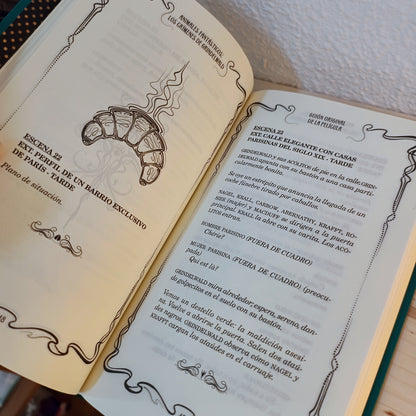 ANIMALES FANTÁSTICOS:
LOS CRÍMENES DE GRINDELWALD
ESCENA 22
EXT. PERFIL DE UN BARRIO EXCLUSIVO
DE PARÍS - TARDE
Plano de situación.
GUIÓN ORIGINAL
DE LA PELÍCULA
ESCENA 23
EXT. CALLE ELEGANTE CON CASAS
PARISINAS DEL SIGLO XIX - TARDE
GRINDELWALD y sus ACÓLITOS de pie en la calle. GRIN-
DELWALD apunta con su bastón a una casa parti-
cularmente bonita.
Se oye un estrépito que anuncia la llegada de un
coche fúnebre tirado por caballos.
NAGEL, KRALL, CARROW, ABERNATHY, KRAFFT, RO-
SIER (mujer) y MACDUFF se dirigen a la puerta
principal. KRALL la abre con su varita. Los ACÓ-
LITOS entran.
HOMBRE PARISINO (FUERA DE CUADRO)
Chérie?
MUJER PARISINA (FUERA DE CUADRO) (preocu-
pada)
Qui est là?
GRINDELWALD mira alrededor, espera, sereno, dan-
do golpecitos en el suelo con su bastón.
Vemos un destello verde: la maldición asesi-
na. Vuelve a abrirse la puerta. Salen dos ataú-
des negros. GRINDELWALD observa cómo NAGEL y
KRAFFT cargan los ataúdes en el carruaje.